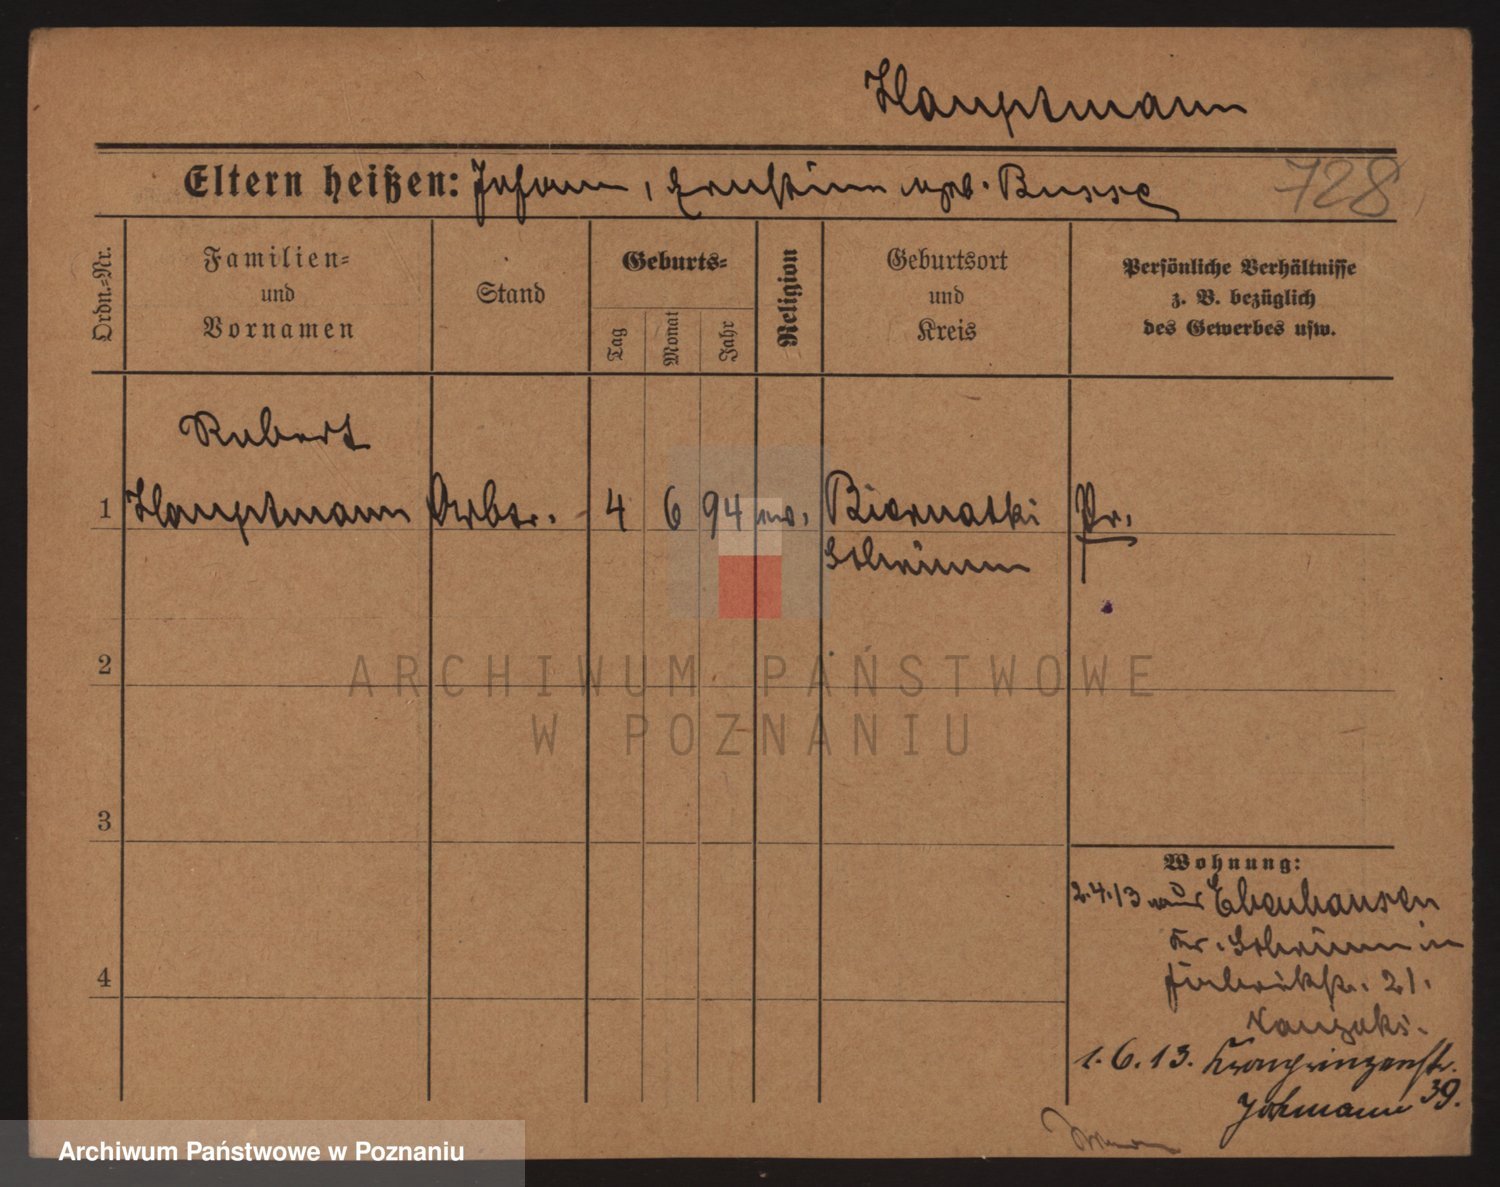 Hauptmann
Eltern heißen: Johann, Ernstine geb. Busse
728
Ordn.-Nr.
Familien- und Vornamen
Stand
Geburts-
Tag
Monat
Jahr
Religion
Geburtsort und Kreis
Persönliche Verhältnisse
z. B. bezüglich
des Gewerbes usw.
Robert
1 Hauptmann Arbtr. 4 6 94 ev. Biernatki Pr.
Schrimm
2
3
4
Wohnung:
2.4.13 aus Ebenhausen
Kr. Schrimm in
21.
1.6.13. Kronprinzenstr.
39.
ARCHIWUM PAŃSTWOWE
W POZNANIU
Archiwum Państwowe w Poznaniu